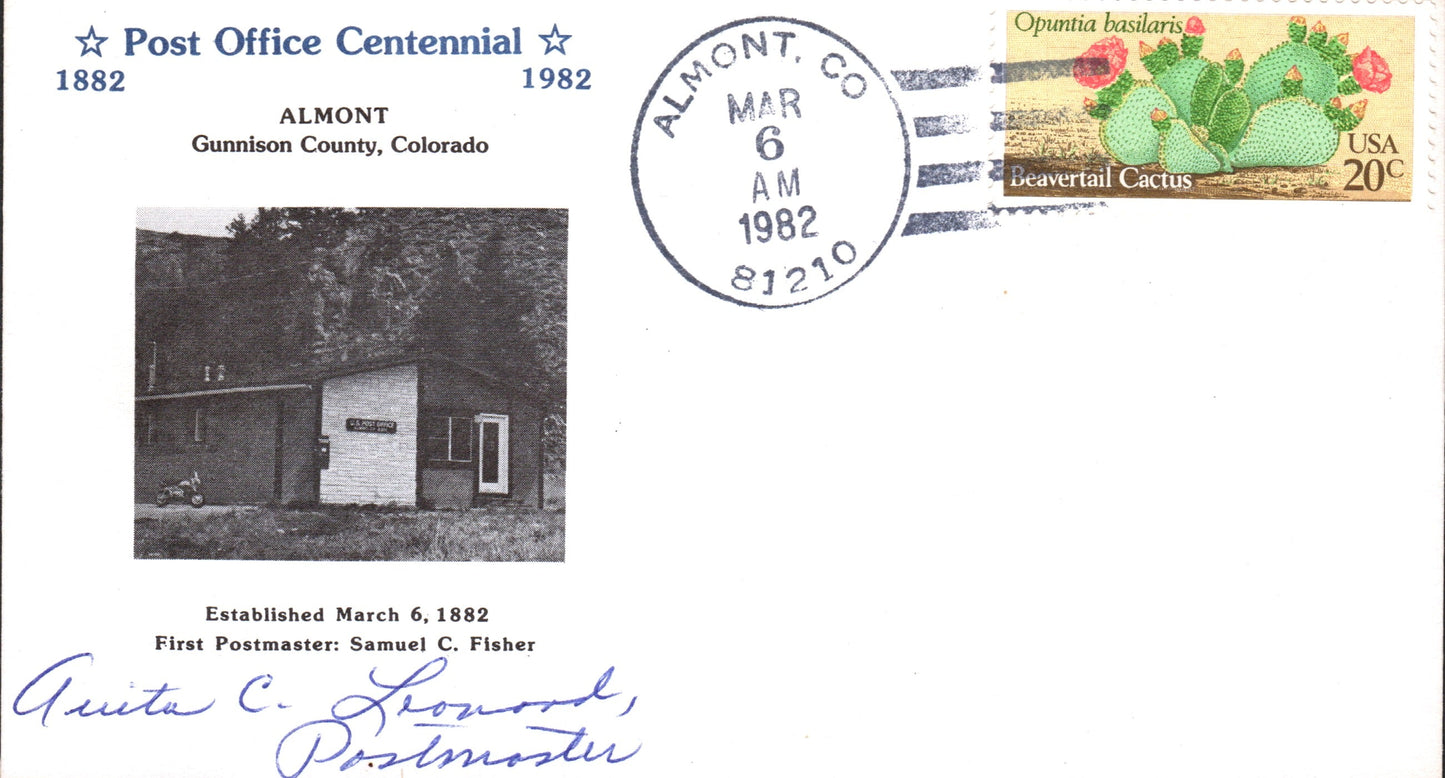 ☆ Post Office Centennial ☆
1882 1982
ALMONT
Gunnison County, Colorado
U.S. POST OFFICE
Established March 6, 1882
First Postmaster: Samuel C. Fisher
Anita C. Leonard,
Postmaster
ALMONT, CO
MAR
6
AM
1982
81210
Opuntia basilaris
USA
20c
Beavertail Cactus